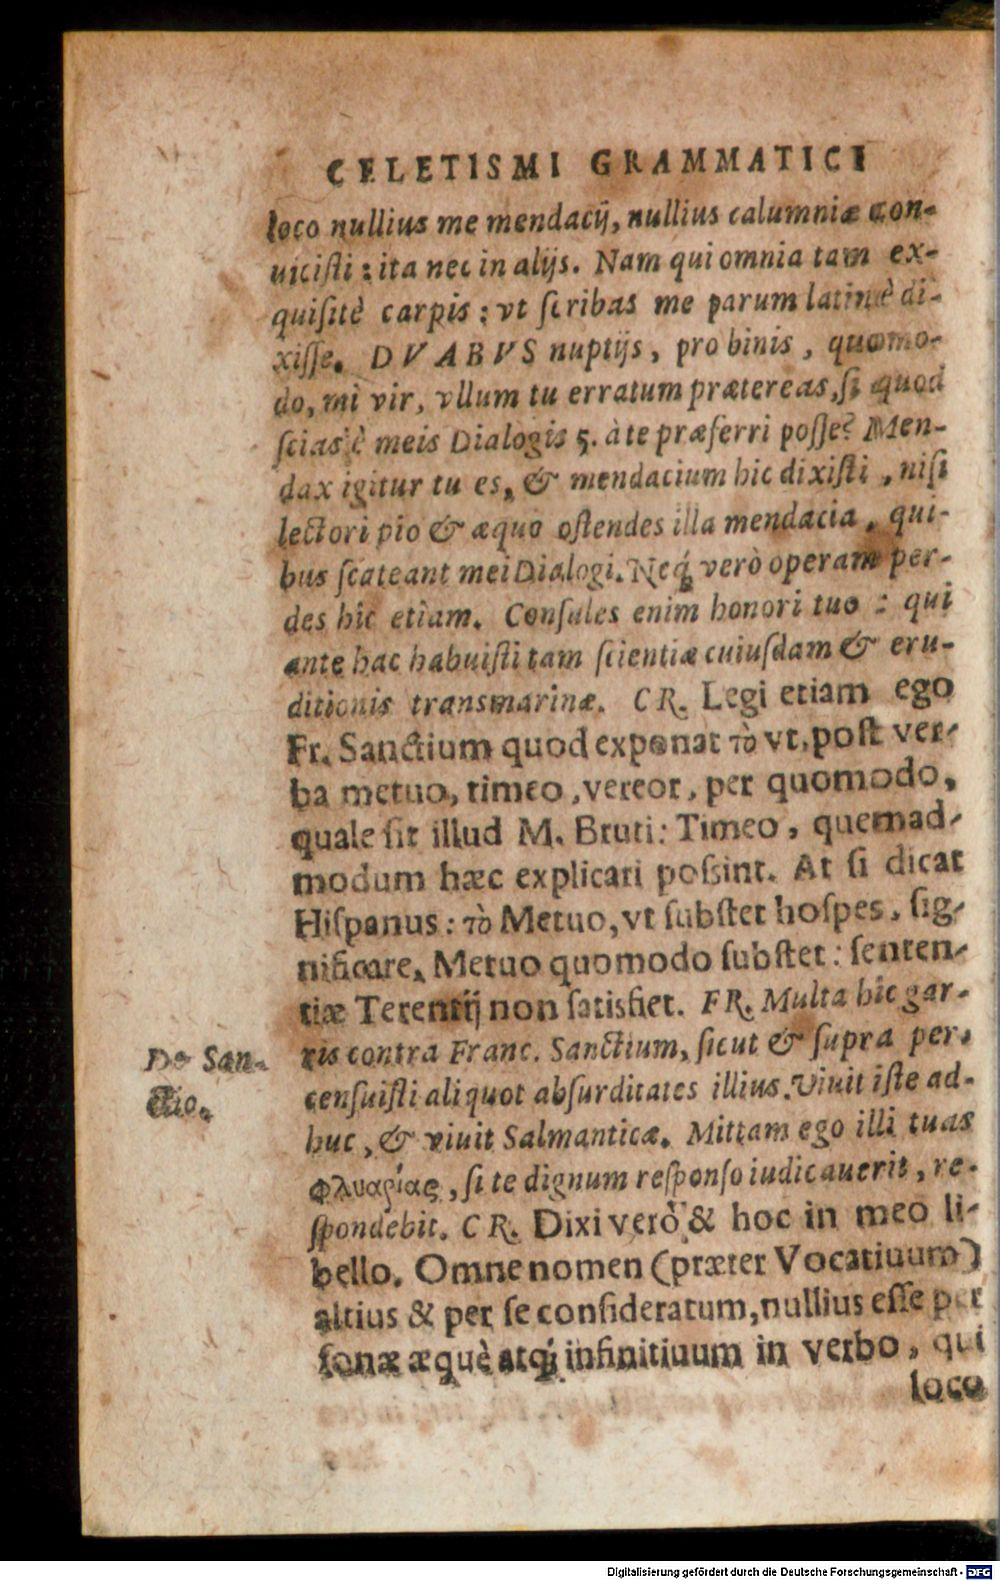 CELETISMI GRAMMATICI
loco nullius me mendacij, nullius calumniæ con-
uicisti : ita nec in alijs. Nam qui omnia tam ex-
quisitè carpis : vt scribas me parum latinè di-
xisse. DVABVS nuptijs, pro binis, quomo-
do, mi vir, vllum tu erratum prætereas, si quod
scias è meis Dialogis 5. à te præferri posse? Men-
dax igitur tu es, & mendacium hic dixisti, nisi
lectori pio & æquo ostendes illa mendacia, qui-
bus scateant mei Dialogi. Neq; verò operam per-
des hic etiam. Consules enim honori tuo : qui
ante hac habuisti tam scientiæ cuiusdam & eru-
ditionis transmarinæ. CR. Legi etiam ego
Fr. Sanctium quod exponat τὸ vt, post ver-
ba metuo, timeo, vereor, per quomodo,
quale sit illud M. Bruti: Timeo, quemad-
modum hæc explicari possint. At si dicat
Hispanus: τὸ Metuo, vt substet hospes, sig-
nificare, Metuo quomodo substet: senten-
tiæ Terentij non satisfiet. FR. Multa hic gar-
ris contra Franc. Sanctium, sicut & supra per-
censuisti aliquot absurditates illius. Viuit iste ad-
huc, & viuit Salmanticæ. Mittam ego illi tuas
φλυαρίας, si te dignum responso iudicauerit, re-
spondebit. CR. Dixi verò & hoc in meo li-
bello. Omne nomen (præter Vocatiuum)
altius & per se consideratum, nullius esse per
sonæ æquè atq; infinitiuum in verbo, qui
loco
De San-
ctio.
Digitalisierung gefördert durch die Deutsche Forschungsgemeinschaft - DFG